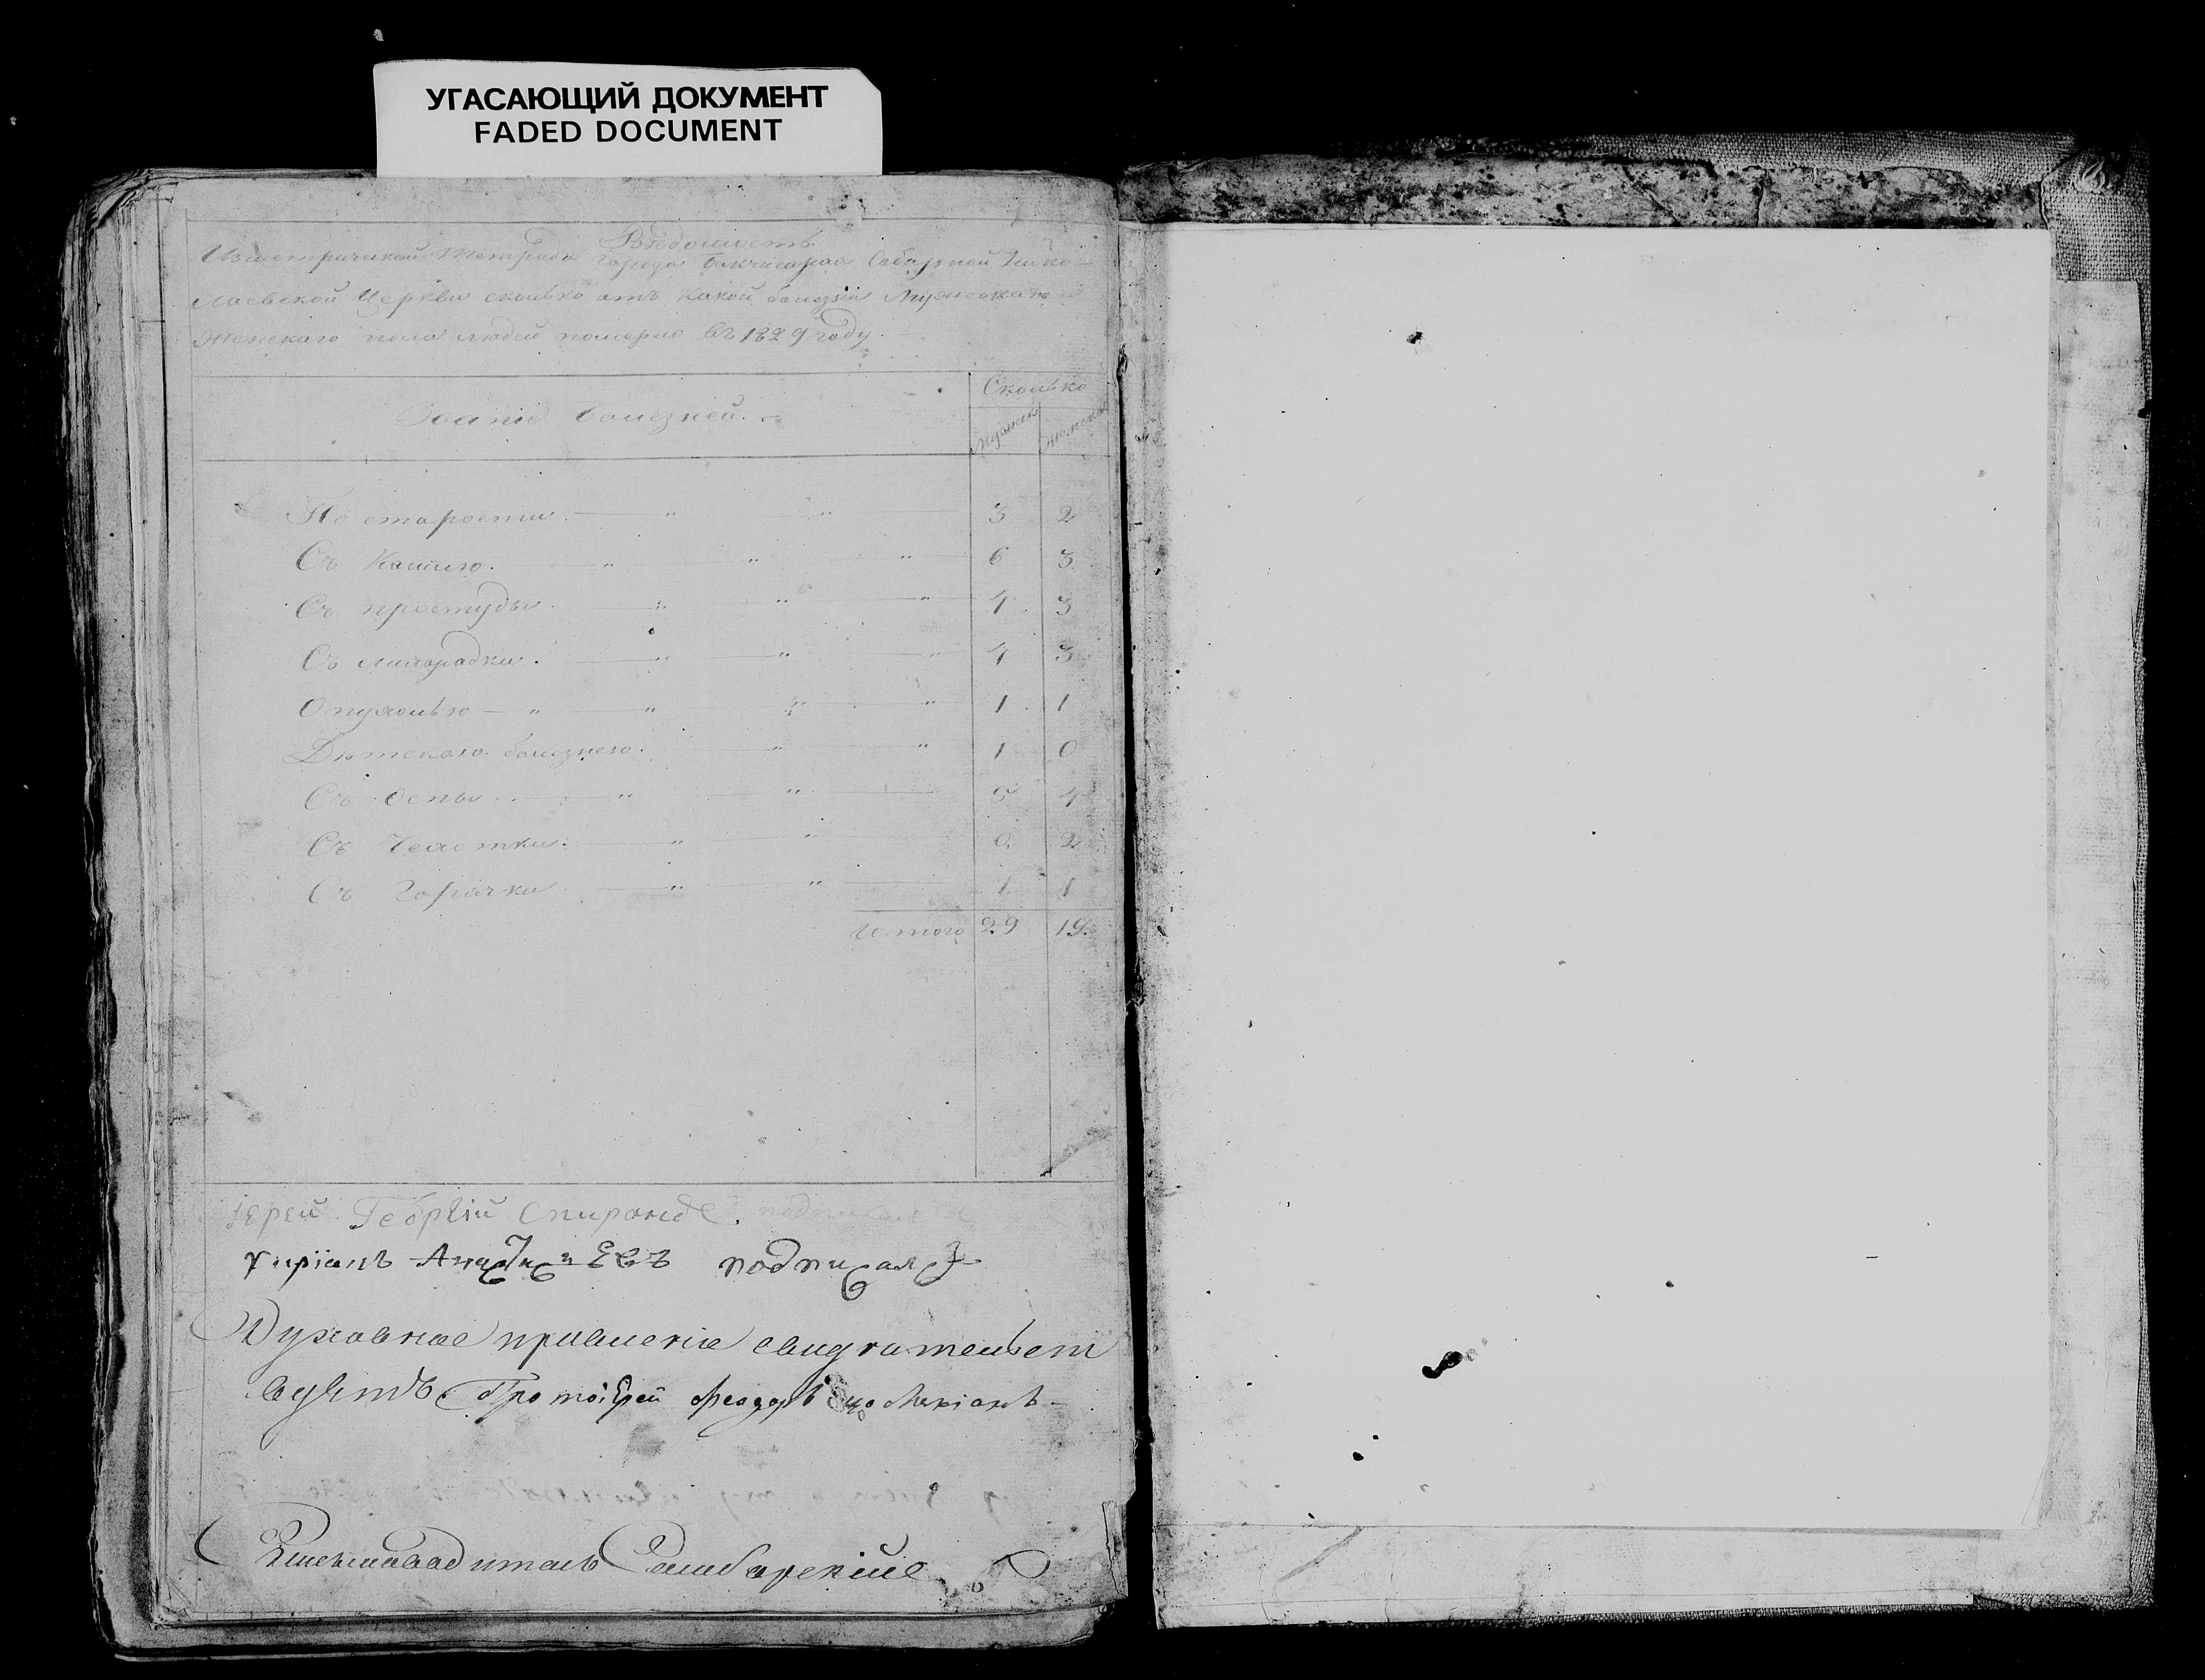 УГАСАЮЩИЙ ДОКУМЕНТ
FADED DOCUMENT
Вѣдомость
Изметрической тетради города Бакчисарая Соборней Нико-
лаевской Церкви сколько отъ какой болезни Мужескаго и
Женскаго пола людей померло въ 1829 году.
Званіе болезней.
Сколько
Мужеск
Женскаго
По старости. 3 2
Съ Кашлю. 6 3
Съ простуды. 4 3
Съ лихорадки. 4 3
Опухолью 1 1
Дѣтскою болезнею. 1 0
Съ оспы 5 4
Съ Чехотки. 0 2
Съ Горячки 1 1
Итого 29 19.
Іерей Георгій Спиранде. подписался
подписался
Духовное правленіе свидѣтельст
вуетъ Протоіерей Феодоръ